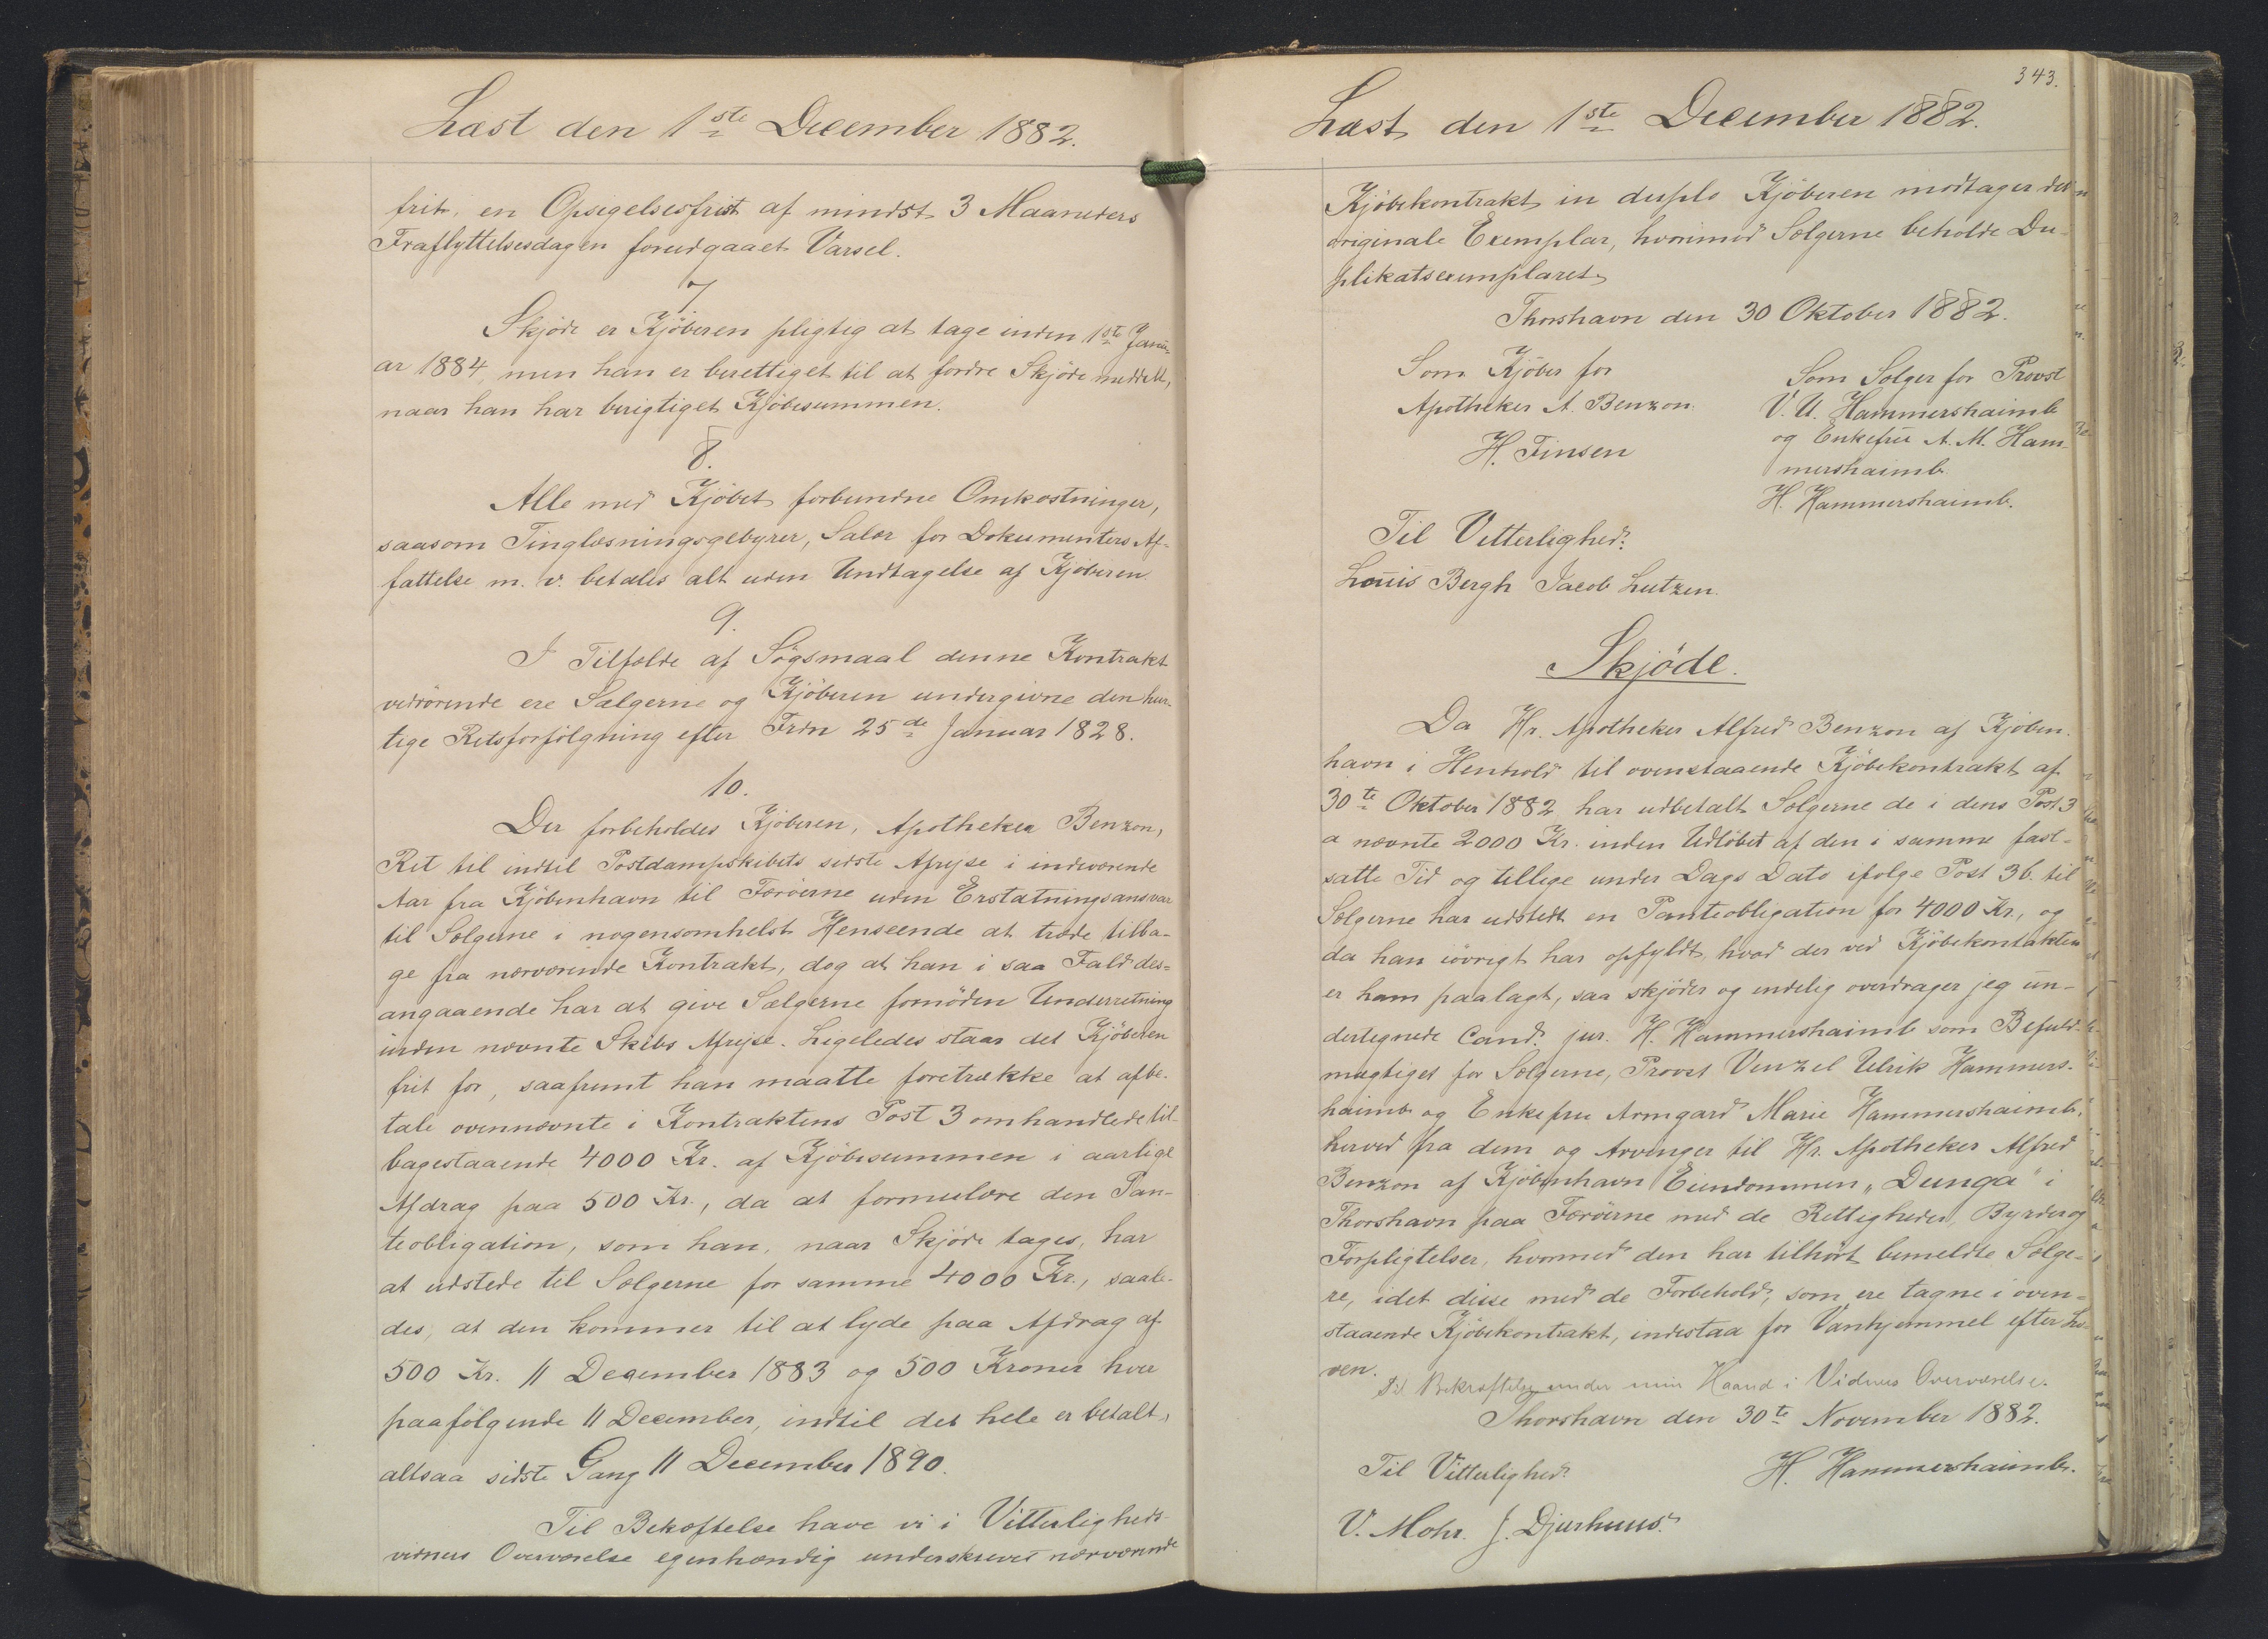 Læst den 1ste December 1882.
frit, en Opsigelsesfrist af mindst 3 Maaneders
Fraflyttelsesdagen forudgaaet Varsel.
7.
Skjøde er Kjöberen pligtig at tage inden 1ste Janu-
ar 1884, men han er berettiget til at fordre Skjöde meddelt,
naar han har berigtiget Kjöbesummen.
8.
Alle med Kjöbet forbundne Omkostninger,
saasom Tinglæsningsgebyrer, Salær for Dokumenters Af-
fattelse m. v. betales alt uden Undtagelse af Kjöberen.
9.
I Tilfælde af Sögsmaal denne Kontrakt
vedrörende ere Sælgerne og Kjöberen undergivne den hur-
tige Retsforfölgning efter Frdn 25de Januar 1828.
10.
Der forbeholdes Kjöberen, Apotheker Benzon,
Ret til indtil Postdampskibets sidste Afrejse i indeværende
Aar fra Kjöbenhavn til Færöerne uden Erstatningsansvar
til Sælgerne i nogensomhelst Henseende at træde tilba-
ge fra nærværende Kontrakt, dog at han i saa Fald des-
angaaende har at give Sælgerne fornöden Underretning
inden nævnte Skibs Afrejse. Ligeledes staar det Kjöberen
frit for, saafremt han maatte foretrække at afbe-
tale ovennævnte i Kontraktens Post 3 omhandlede til-
bagestaaende 4000 Kr. af Kjöbesummen i aarlige
Afdrag paa 500 Kr., da at formulere den Pan-
teobligation, som han, naar Skjöde tages, har
at udstede til Sælgerne for samme 4000 Kr., saale-
des, at den kommer til at lyde paa Afdrag af
500 Kr. 11 December 1883 og 500 Kroner hver
paafölgende 11 December, indtil det hele er betalt,
altsaa sidste Gang 11 December 1890.
Til Bekæftelse have vi i Vitterligheds-
vidners Overværelse egenhændig underskrevet nærværende
343.
Læst den 1ste December 1882.
Kjöbekontrakt in duplo Kjöberen modtager det
originale Exemplar, hvorimod Sælgerne beholde Du-
plikatsexemplaret
Thorshavn den 30 Oktober 1882.
Som Kjöber for
Apotheker A. Benzon
H. Finsen
Som Sælger for Provst
V. U. Hammershaimb
og Enkefru A. M. Ham-
mershaimb
H. Hammershaimb.
Til Vitterlighed:
Louis Bergh Jacob Lutzen.
Skjöde.
Da Hr. Apotheker Alfred Benzon af Kjöben-
havn i Henhold til ovenstaaende Kjöbekontrakt af
30te Oktober 1882 har udbetalt Sælgerne de i dens Post 3
a nævnte 2000 Kr. inden Udlöbet af den i samme fast-
satte Tid og tillige under Dags Dato ifölge Post 3b. til
Sælgerne har udstedt en Panteobligation for 4000 Kr., og
da han iövrigt har opfyldt, hvad der ved Kjöbekontakten
er ham paalagt, saa skjöder og endelig overdrager jeg un-
dertegnede Cand. jur. H. Hammershaimb som Befuld-
mægtiget for Sælgerne, Provst Venzel Ulrik Hammers-
haimb og Enkefru Armgard Marie Hammershaimb,
herved fra dem og Arvinger til Hr. Apotheker Alfred
Benzon af Kjöbenhavn Eiendommen "Dunga" i
Thorshavn paa Færöerne med de Rettigheder, Byrder og
Forpligtelser, hvormed den har tilhört bemeldte Sælge-
re, idet disse med de Forbehold, som ere tagne i oven-
staaende Kjöbekontrakt, indestaa for Vanhjemmel efter Lo-
ven.
Til Bekræftelse under min Haand i Vidners Overværelse.
Thorshavn den 30te November 1882.
Til Vitterlighed:
H. Hammershaimb.
V. Mohr. J. Djurhuus.